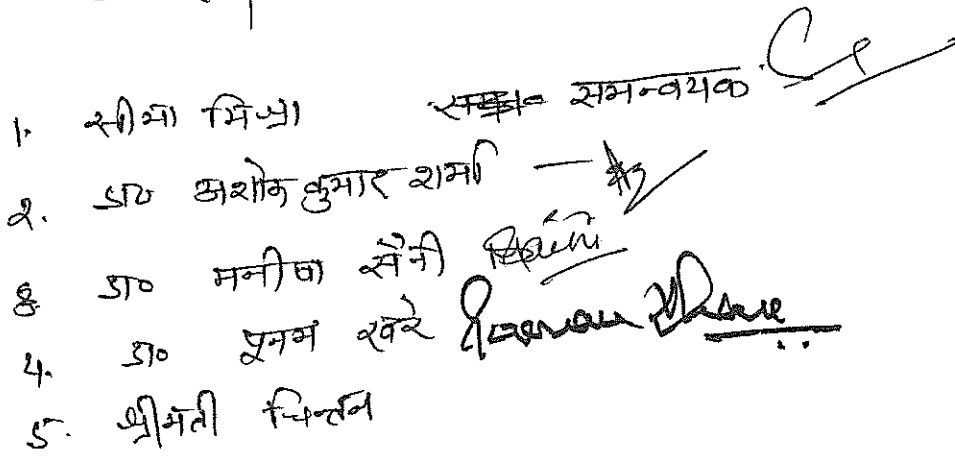 1. सीमा मिश्रा समन्वयक
2. डा० अशोक कुमार शर्मा —
3. डा० मनीषा सैनी Saini
4. डा० पूनम खरे Poonam Khare
5. श्रीमती चिन्तन